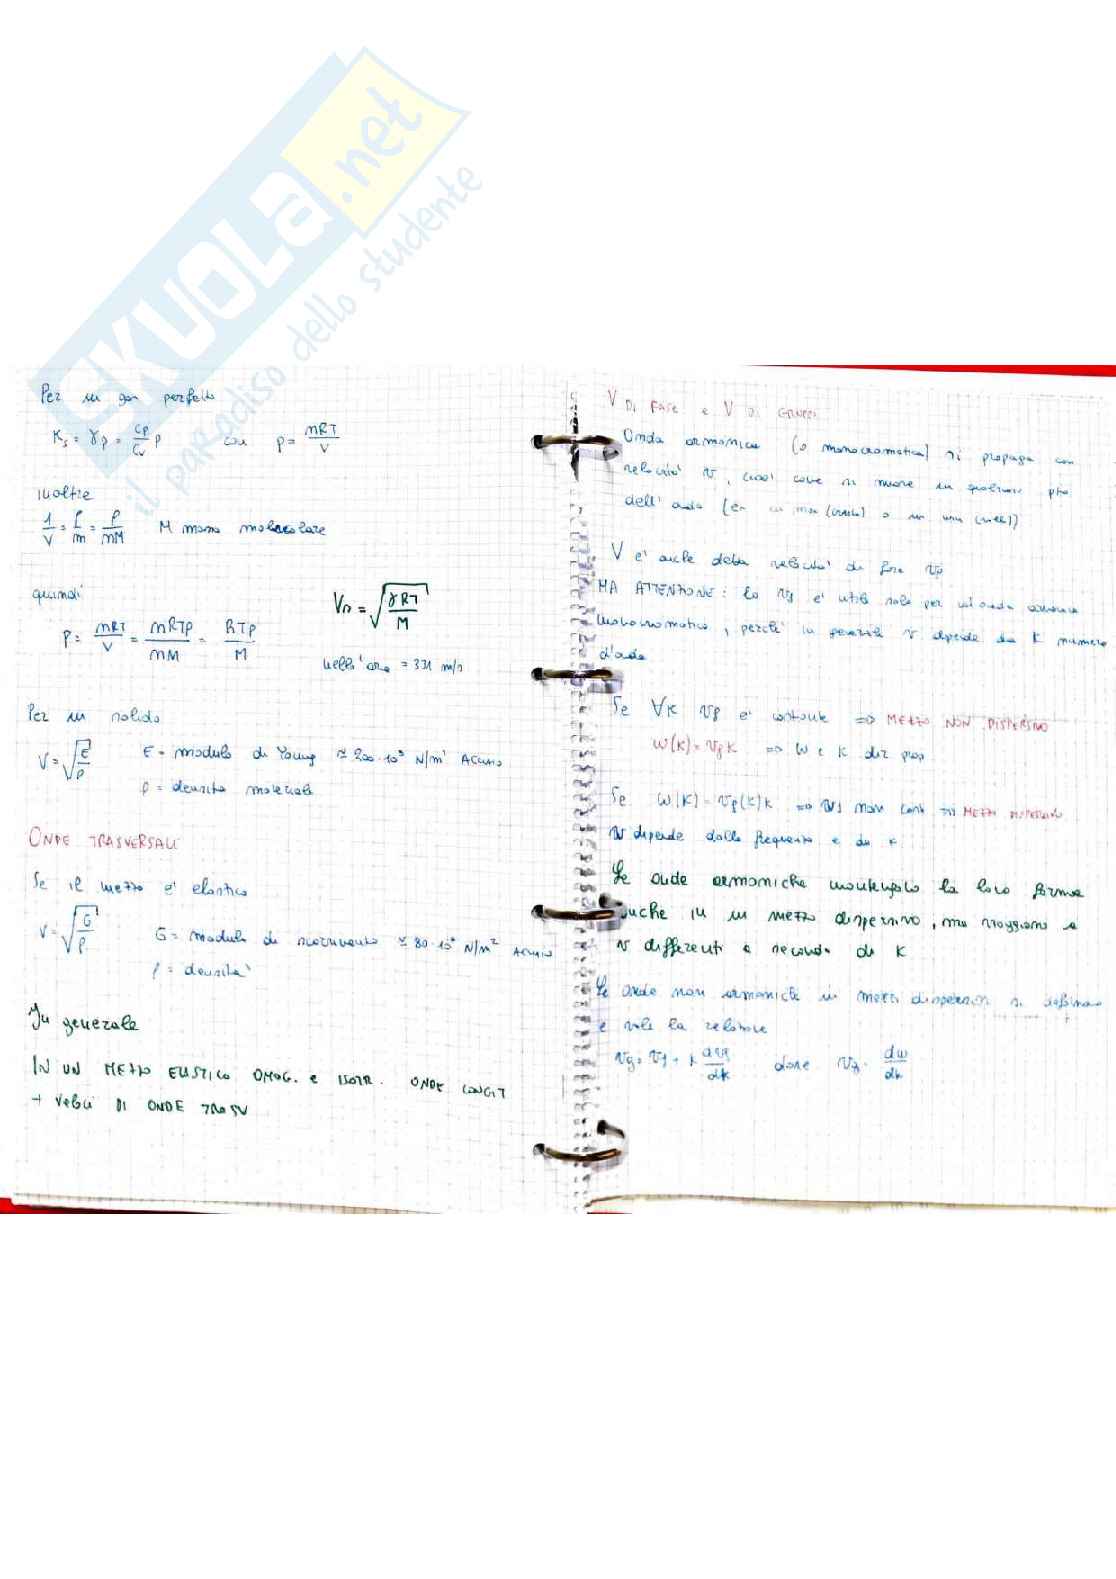 SKUOLA.net
il paradiso dello studente
Per un gas perfetto
Ks = γp = Cp/Cv p con p = nRT/V
inoltre
1/V = ρ/m = ρ/nM M massa molecolare
quindi
p = nRT/V = nRTρ/nM = RTρ/M
Vs = √(γRT/M)
nell'aria = 331 m/s
Per un solido
V = √(E/ρ) E = modulo di Young ≃ 200·10⁹ N/m² Acciaio
ρ = densità materiale
ONDE TRASVERSALI
Se il mezzo è elastico
V = √(G/ρ) G = modulo di scorrimento ≃ 80·10⁹ N/m² ACCIAIO
ρ = densità
In generale
IN UN MEZZO ELASTICO OMOG. e ISOTR. ONDE LONGIT
+ veloci DI ONDE TRASV
V DI FASE e V DI GRUPPO
Onda armonica (o monocromatica) si propaga con
velocità v, così come si muove un qualsiasi pto
dell'onda (es. un max (cresta) o un min (valle))
V è anche detta velocità di fase vf
MA ATTENZIONE: la vf è utile solo per un'onda armonica
monocromatica, perché in generale v dipende da K numero
d'onda
Se ∀K vf è costante ⇒ MEZZO NON DISPERSIVO
ω(K) = vf K ⇒ ω e K dir prop
Se ω(K) = vf(K)k ⇒ vf non cost ⇒ MEZZI DISPERSIVI
v dipende dalla frequenza e da K
Le onde armoniche mantengono la loro forma
anche in un mezzo dispersivo, ma viaggiano a
v differenti a seconda di K
Le onde non armoniche in mezzi dispersivi si deformano
e vale la relazione
vg = vf + k dvf/dk dove vg = dω/dk